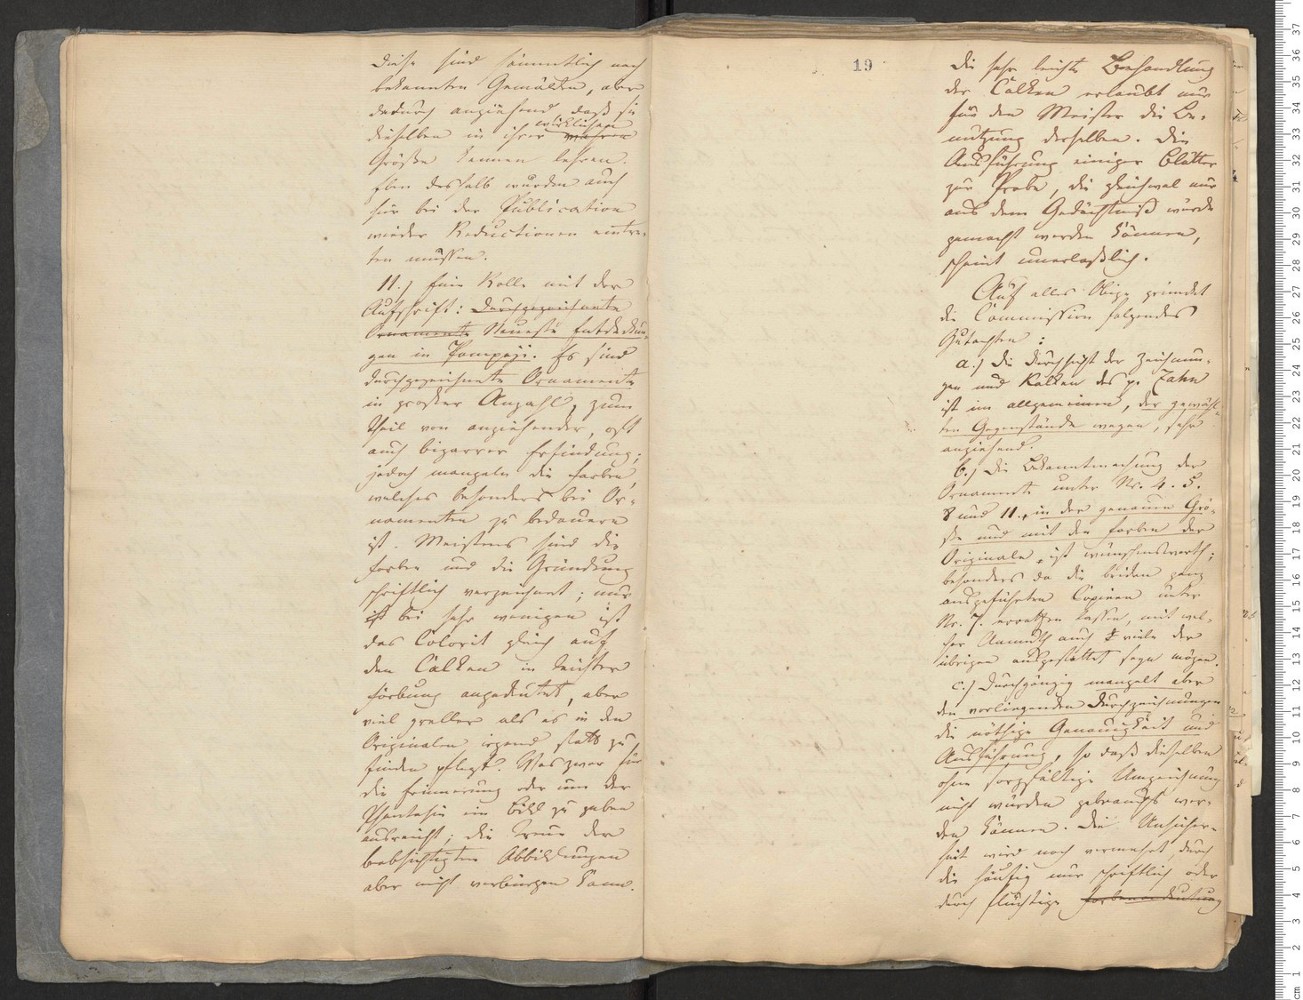 Diese sind sämmtlich nach
bekannten Gemälden, aber
dadurch anziehend, daß sie
dieselben in ihrer wirklichen
Größe kennen lehren.
Eben deshalb würden auch
hier bei der Publication
wieder Reductionen eintre-
ten müssen.
11.) Eine Rolle mit der
Aufschrift: Durchgezeichnete
Ornamente Neueste Entdeckun-
gen in Pompeji. Es sind
durchgezeichnete Ornamente
in großer Anzahl, zum
Theil von anziehender, oft
auch bizarrer Erfindung;
jedoch mangeln die Farben,
welches besonders bei Or-
namenten zu bedauern
ist. Meistens sind die
Farben und die Gründung
schriftlich verzeichnet; nur
bei sehr wenigen ist
das Colorit gleich auf
den Calken in leichter
Färbung angedeutet, aber
viel greller als es in den
Originalen irgend statt zu
finden pflegt. Was zwar für
die Erinnerung oder um der
Phantasie ein Bild zu geben
ausreicht; die Treue der
beabsichtigten Abbildungen
aber nicht verbürgen kann.
19
Die sehr leichte Behandlung
der Calken erlaubt nur
für den Meister die Be-
nutzung derselben. Die
Ausführung einiger Blätter
zur Probe, die gleichwol nur
aus dem Gedächtniß würde
gemacht werden können,
scheint unerlaßlich.
Auf alles Obige gründet
die Commission folgendes
Gutachten:
a.) Die Durchsicht der Zeichnun-
gen und Kalken des p. Zahn
ist im allgemeinen, der gewähl-
ten Gegenstände wegen, sehr
anziehend.
b.) Die Bekanntmachung der
Ornamente unter Nr. 4. 5.
8 und 11., in der genauen Grö-
ße und mit den Farben der
Originale, ist wünschenswerth;
besonders da die beiden ganz
ausgeführten Copieen unter
Nr. 7. errathen lassen, mit wel-
cher Anmuth auch viele der
übrigen ausgestattet seyn mögen.
c.) Durchgängig mangelt aber
den vorliegenden Durchzeichnungen
die nöthige Genauigkeit und
Ausführung, so daß dieselben
ohne sorgfältige Umzeichnung
nicht würden gebraucht wer-
den können. Die Unsicher-
heit wird noch vermehrt, durch
die häufig nur schriftlich oder
durch flüchtige Farbenandeutung